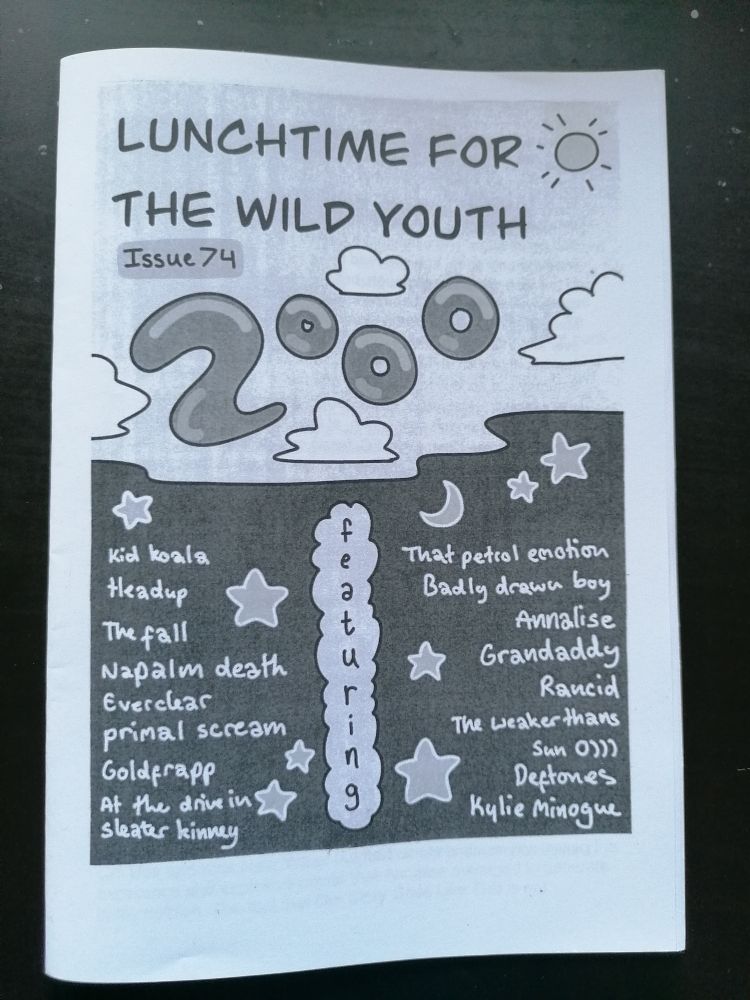 LUNCHTIME FOR
THE WILD YOUTH
Issue 74
2000
featuring
Kid koala
Headup
The fall
Napalm death
Everclear
primal scream
Goldfrapp
At the drive in
sleater kinney
That petrol emotion
Badly drawn boy
Annalise
Grandaddy
Rancid
The weakerthans
Sun 0)))
Deftones
Kylie Minogue